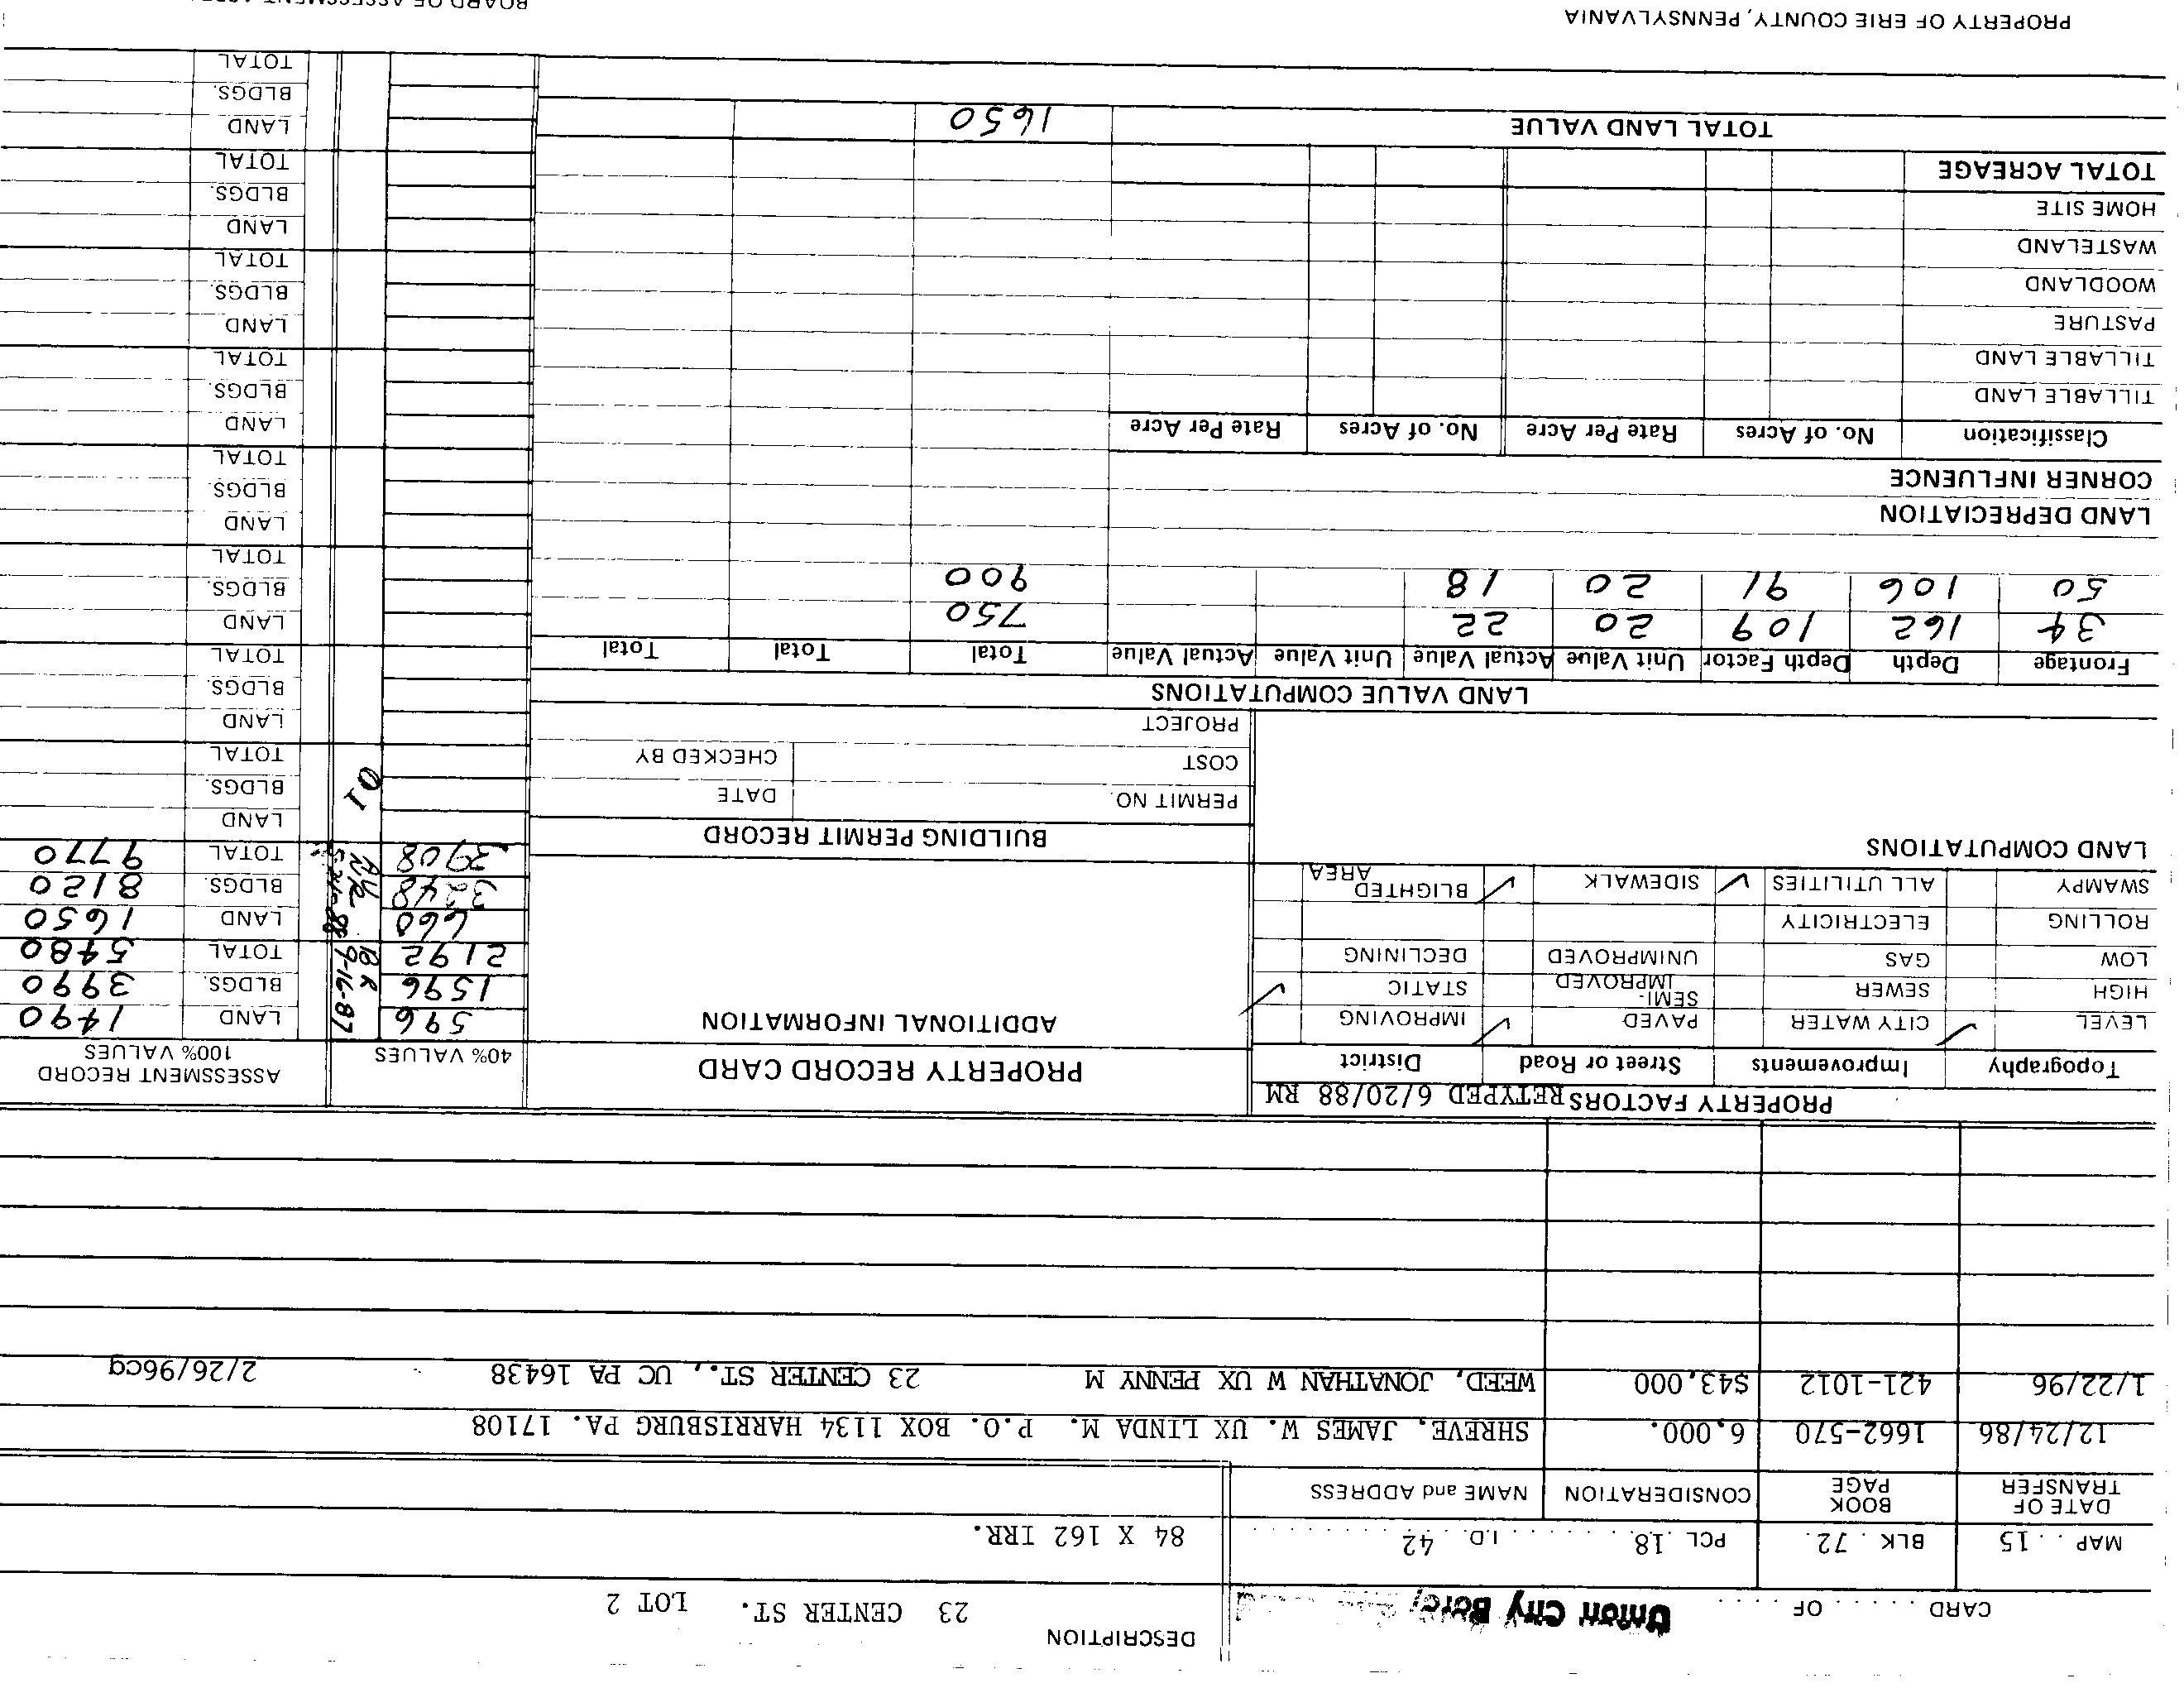 DESCRIPTION
CARD OF Union City Boro 23 CENTER ST. LOT 2
MAP 15 BLK. 72. PCL. 18. I.D. 42 84 X 162 IRR.
DATE OF TRANSFER BOOK PAGE CONSIDERATION NAME and ADDRESS
12/24/86 1662-570 6,000. SHREVE, JAMES W. UX LINDA M. P.O. BOX 1134 HARRISBURG PA. 17108
1/22/96 421-1012 $43,000 WEED, JONATHAN W UX PENNY M 23 CENTER ST., UC PA 16438 2/26/96cg
PROPERTY FACTORS RETYPED 6/20/88 RM
PROPERTY RECORD CARD
ASSESSMENT RECORD
40% VALUES 100% VALUES
Topography Improvements Street or Road District
LEVEL ✓ CITY WATER PAVED ✓ IMPROVING
HIGH SEWER SEMI-IMPROVED STATIC ✓
LOW GAS UNIMPROVED DECLINING
ROLLING ELECTRICITY
SWAMPY ALL UTILITIES ✓ SIDEWALK ✓ BLIGHTED AREA
ADDITIONAL INFORMATION
596 LAND 1490
1596 BLDGS. 3990
2192 TOTAL 5480
BR 9-16-87
660 LAND 1650
3248 BLDGS. 8120
3908 TOTAL 9770
01
LAND COMPUTATIONS
BUILDING PERMIT RECORD
PERMIT NO. DATE
COST CHECKED BY
PROJECT
LAND
BLDGS.
TOTAL
LAND VALUE COMPUTATIONS
Frontage Depth Depth Factor Unit Value Actual Value Unit Value Actual Value Total Total Total
34 162 109 20 22 750
50 106 91 20 18 900
LAND
BLDGS.
TOTAL
LAND
BLDGS.
TOTAL
LAND DEPRECIATION
CORNER INFLUENCE
LAND
BLDGS.
TOTAL
Classification No. of Acres Rate Per Acre No. of Acres Rate Per Acre
TILLABLE LAND
TILLABLE LAND
PASTURE
WOODLAND
WASTELAND
HOME SITE
TOTAL ACREAGE
TOTAL LAND VALUE 1650
LAND
BLDGS.
TOTAL
LAND
BLDGS.
TOTAL
LAND
BLDGS.
TOTAL
LAND
BLDGS.
TOTAL
PROPERTY OF ERIE COUNTY, PENNSYLVANIA
BOARD OF ASSESSMENT